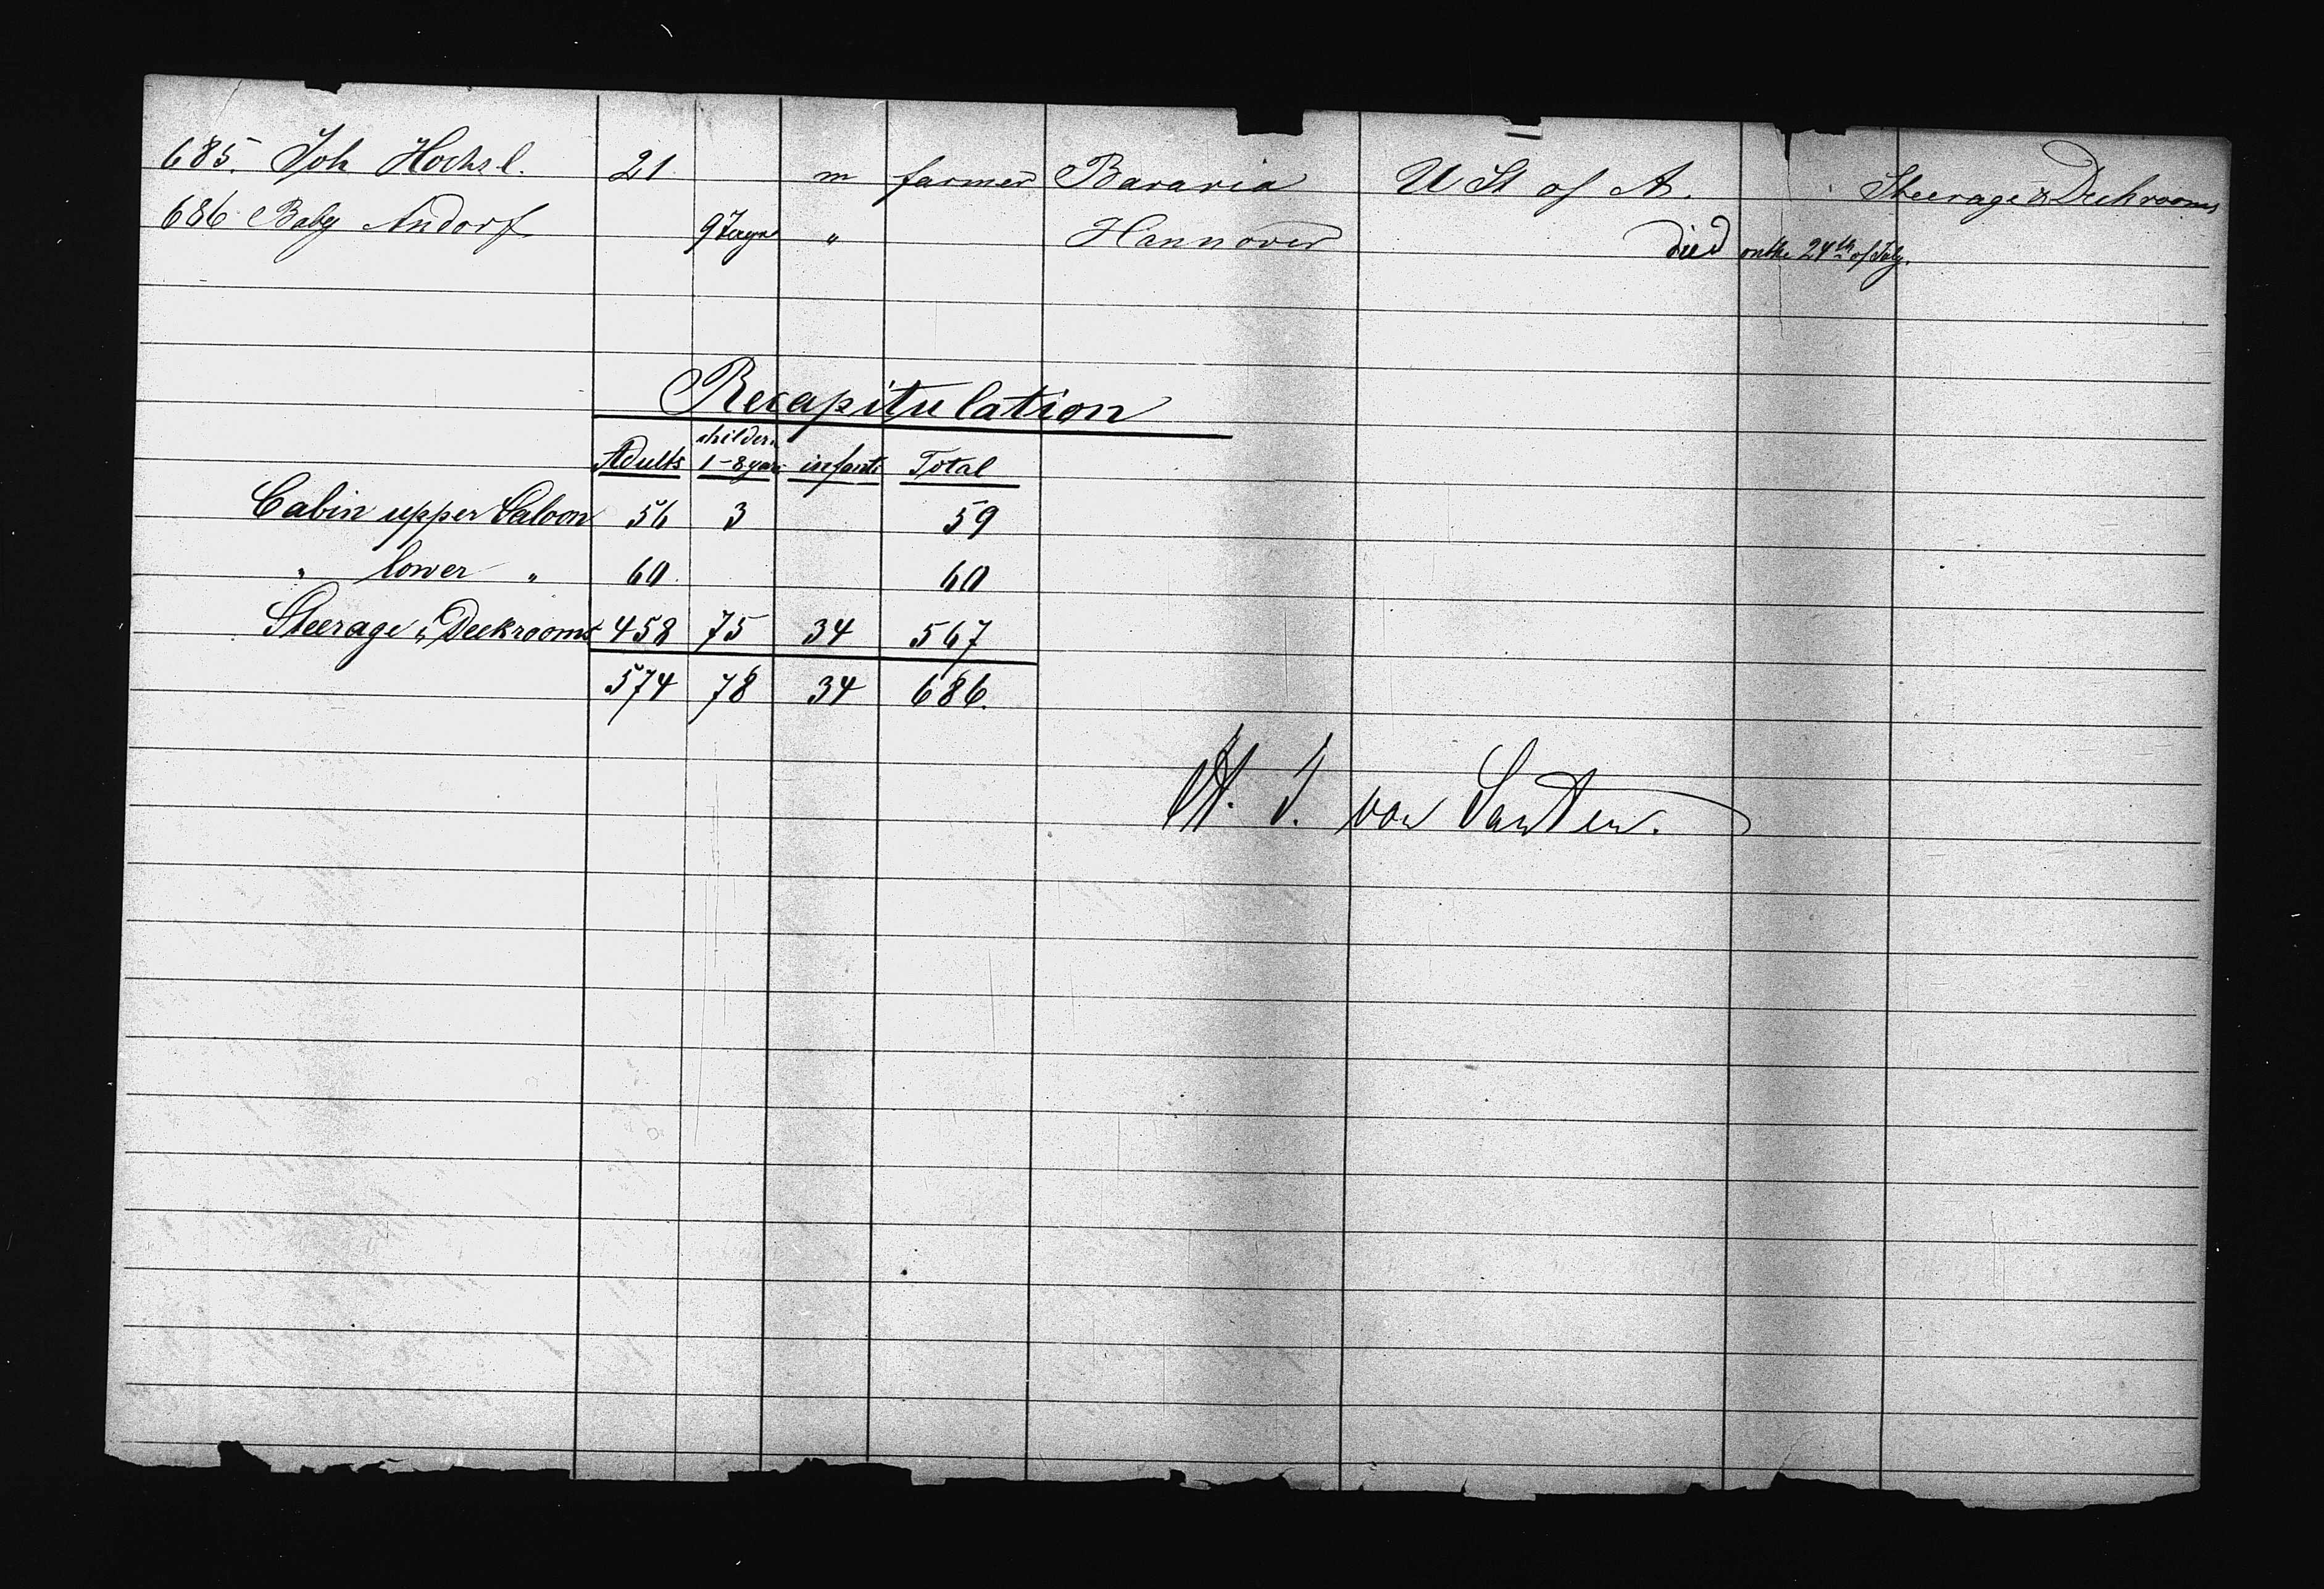 685. Joh Hochsl. 21. m farmer Bavaria U St of A. Steerage & Deckrooms
686 Baby Andorf 9 " Hannover died on the 24th of July.
Recapitulation
Adults childern 1-8 years infants Total
Cabin upper Saloon 56 3 59
" lower " 60. 60
Steerage & Deckrooms 458 75 34 567
574 78 34 686.
von Santen.